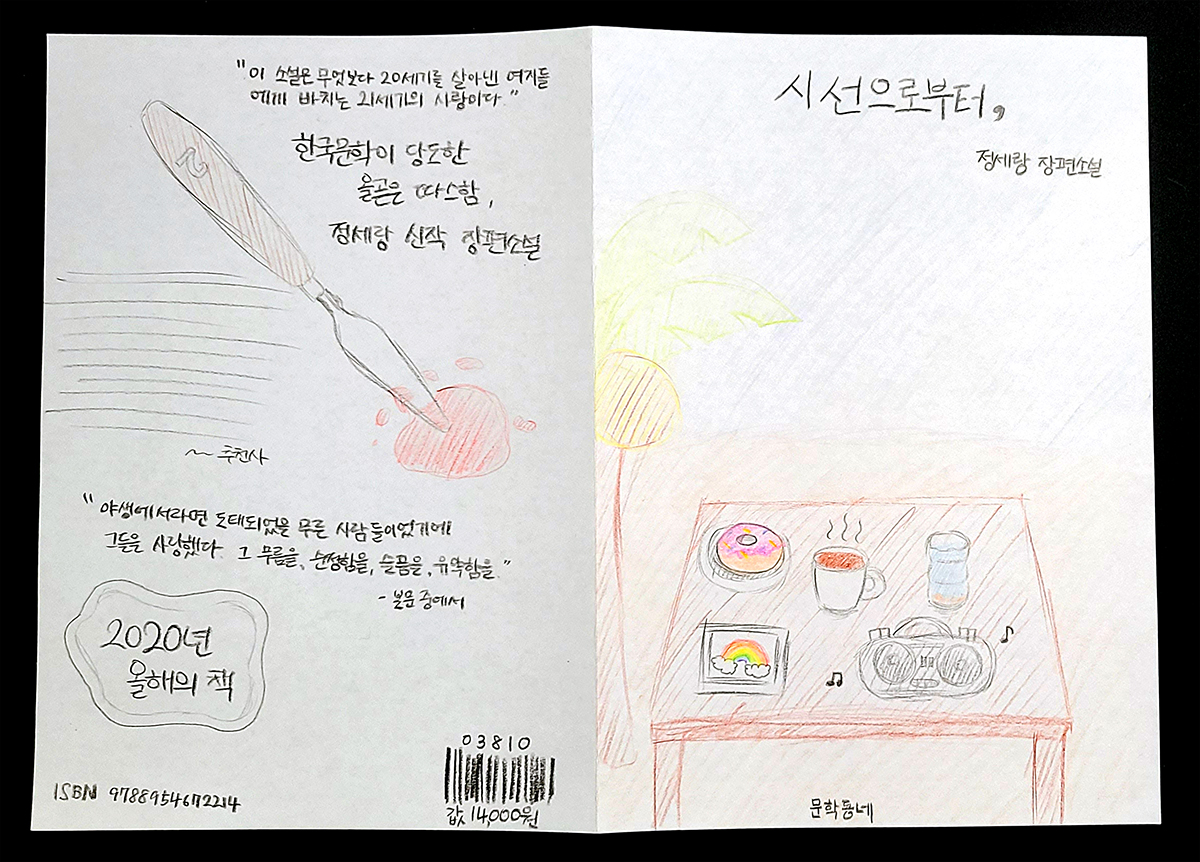 "이 소설은 무엇보다 20세기를 살아낸 여자들
에게 바치는 21세기의 사랑이다."
한국문학이 당도한
올곧은 따스함,
정세랑 신작 장편소설
~ 추천사
"야생에서라면 도태되었을 무른 사람들이었기에
그들을 사랑했다. 그 무름을, 순정함을, 슬픔을, 유약함을."
- 본문 중에서
2020년
올해의 책
ISBN 9788954672214
03810
값 14,000원
시선으로부터,
정세랑 장편소설
문학동네